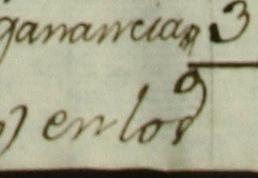 ganancias 3
9
) en los